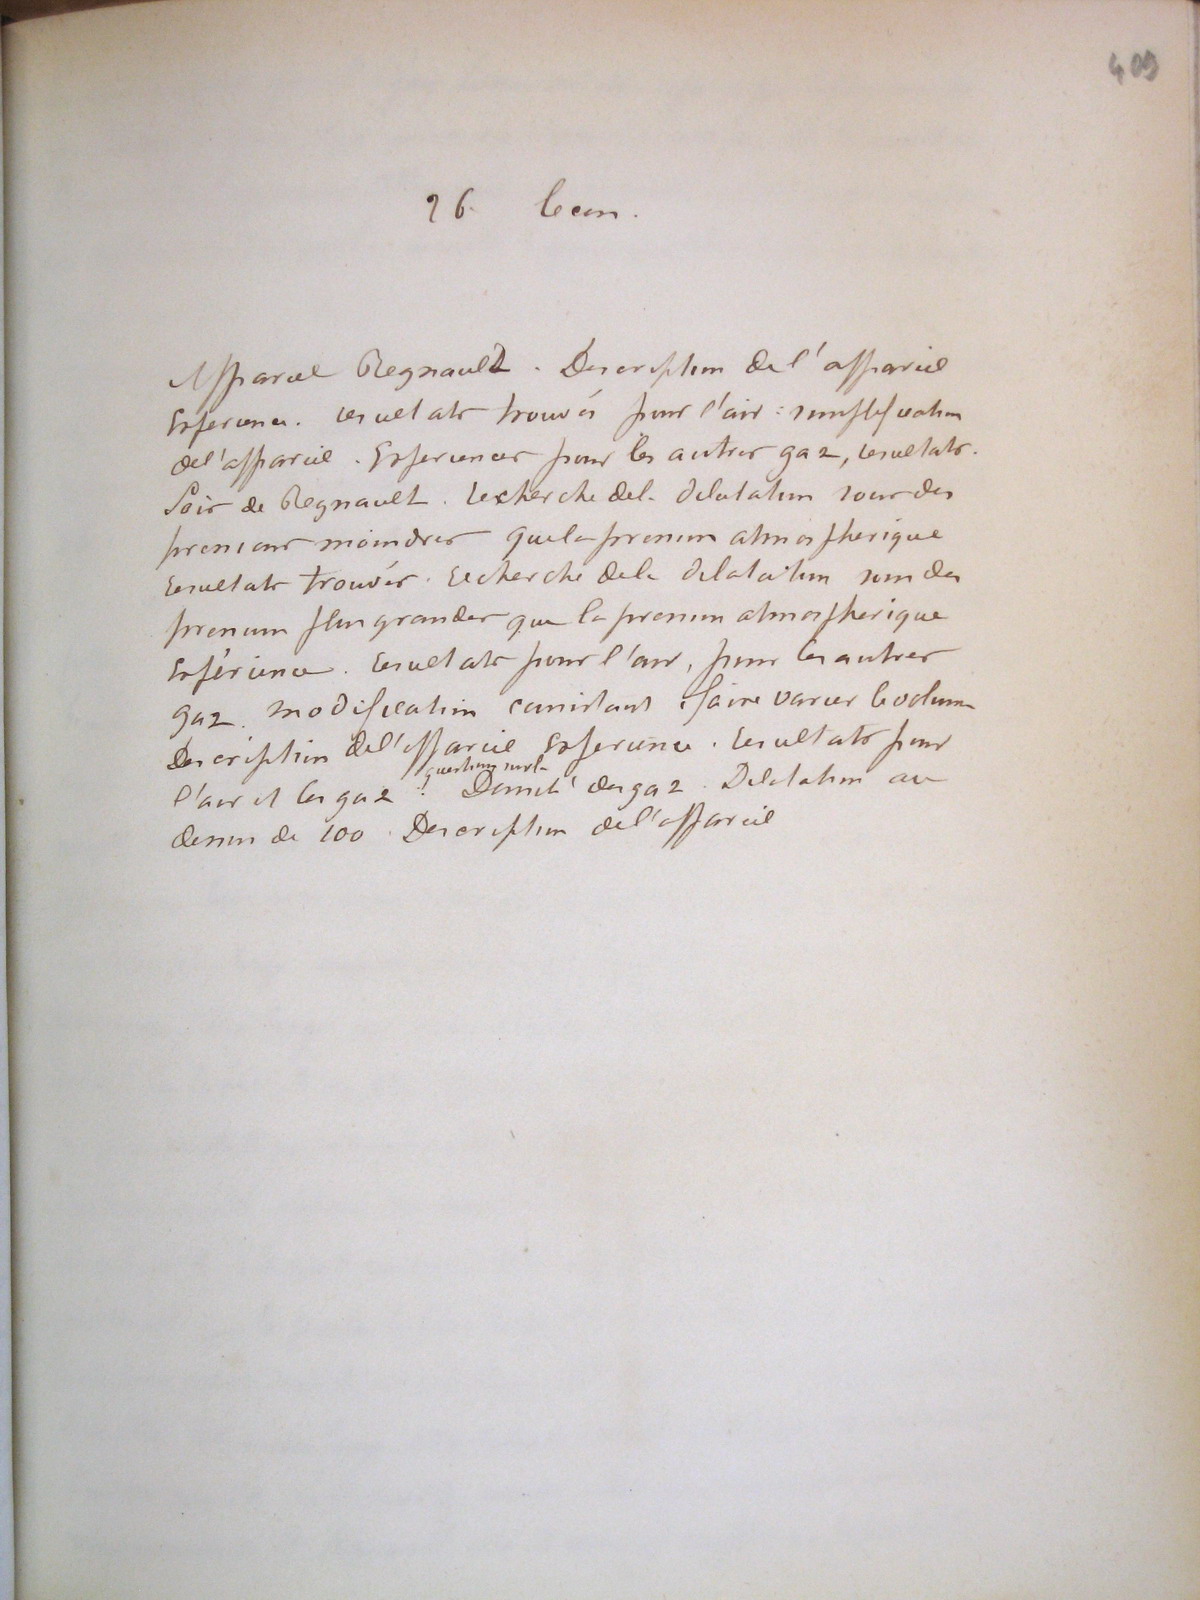 409
26 lecon.
Appareil Regnault. Description de l'appareil
Experience. resultats trouvés pour l'air : simplification
de l'appareil. Experiences pour les autres gaz, resultats.
Lois de Regnault. recherche de la dilatation sous des
pressions moindres que la pression atmospherique
resultats trouvés. recherche de la dilatation sous des
pression plus grandes que la pression atmospherique
expérience. resultats pour l'air, pour les autres
gaz. modification consistant faire varier le volume
Description de l'appareil experience. resultats pour
questions sur la
l'air et les gaz. Densité des gaz. Dilatation au
dessus de 100. Description de l'appareil